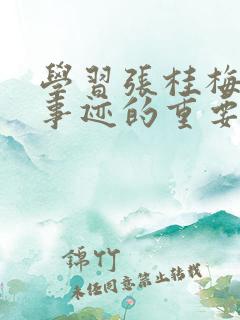 學習張桂梅
事迹的重要
錦竹
未经同意禁止转载